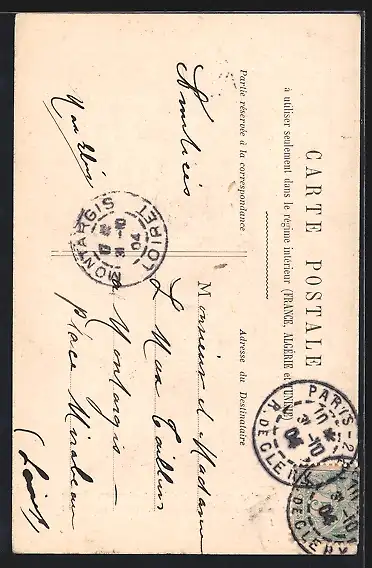 CARTE POSTALE
à utiliser seulement dans le régime intérieur (FRANCE, ALGÉRIE et TUNISIE)
Partie réservée à la correspondance
Adresse du Destinataire
Amitiés
Monsieur et Madame
à Montargis
place Mirabeau
(Loiret)
MONTARGIS
LOIRET
04
PARIS-2
R. DE CLERY
10
04
10
04
R. DE CLERY